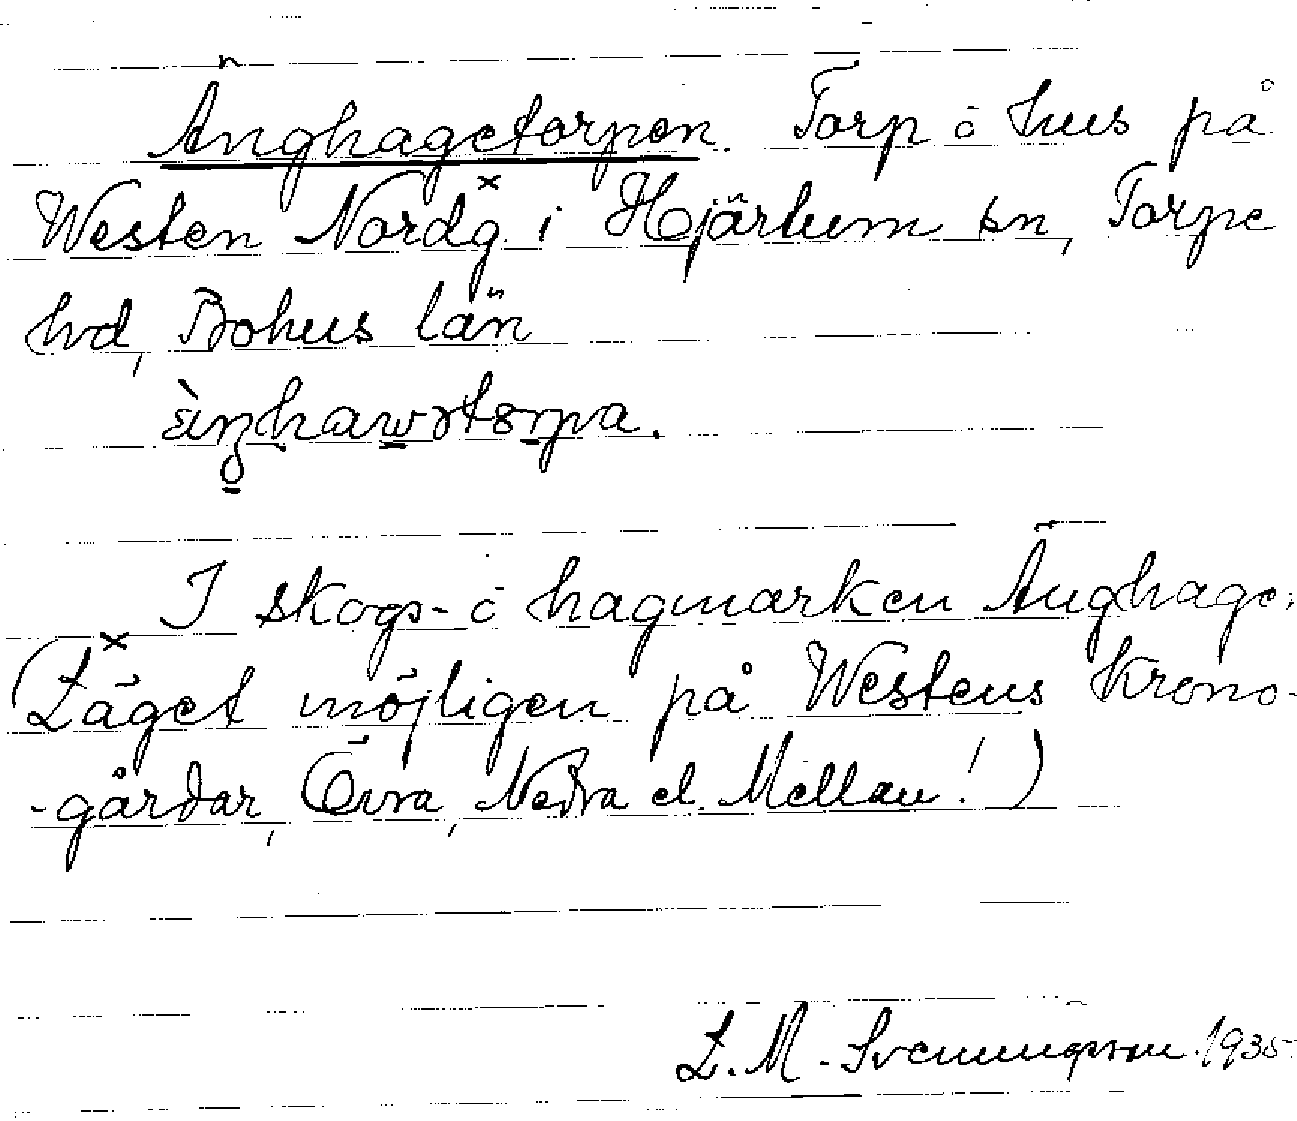 Änghagetorpen. Torp o hus på
Westen Nordg x i Hjärtum sn, Torpe
hd, Bohus län
I skogs- o hagmarken Änghage.
x (Läget möjligen på Westens Krono-
-gårdar, Övra, Nedra el. Mellan!)
L. M. Svenungsson 1935